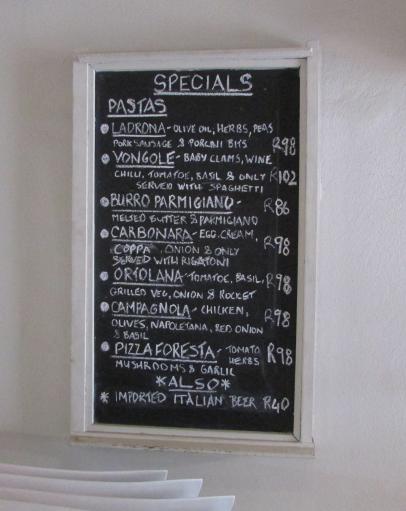 SPECIALS
PASTAS
LADRONA - OLIVE OIL, HERBS, PEAS
PORK SAUSAGE & PORCINI BITS R98
VONGOLE - BABY CLAMS, WINE
CHILLI, TOMATOE, BASIL & ONLY R102
SERVED WITH SPAGHETTI
BURRO PARMIGIANO - R86
MELTED BUTTER & PARMIGIANO
CARBONARA - EGG, CREAM,
COPPA, ONION & ONLY R98
SERVED WITH RIGATONI
ORTOLANA - TOMATOE, BASIL, R98
GRILLED VEG, ONION & ROCKET
CAMPAGNOLA - CHICKEN, R98
OLIVES, NAPOLETANA, RED ONION
& BASIL
PIZZA FORESTA - TOMATO R98
HERBS
MUSHROOMS & GARLIC
*ALSO*
* IMPORTED ITALIAN BEER R40